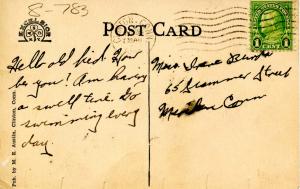 8-783
EXCELSIOR
POST CARD
1 CENT 1
Hello old kid. How
be you? Am having
a swell time. Go
swimming every
day.
Miss Irene
65 Summer Street
Conn
Pub. by M. E. Austin, Clinton, Conn.